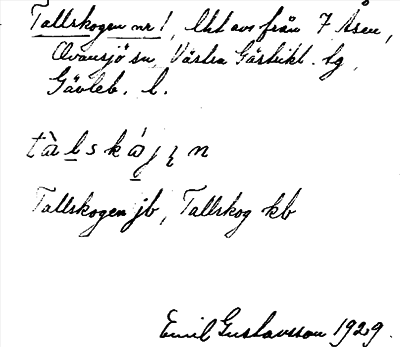 Tallskogen nr 1, lht avs från 7 Åsen,
Ovansjö sn, Västra Gästrikl. tg,
Gävleb. l.
tàlskájen
Tallskogen jb, Tallskog kb
Emil Gustavsson 1929.